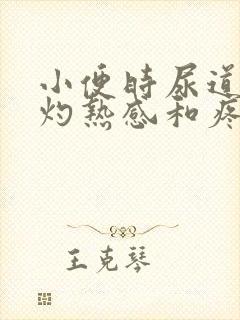 小便时尿道
灼热感和疼
王克琴